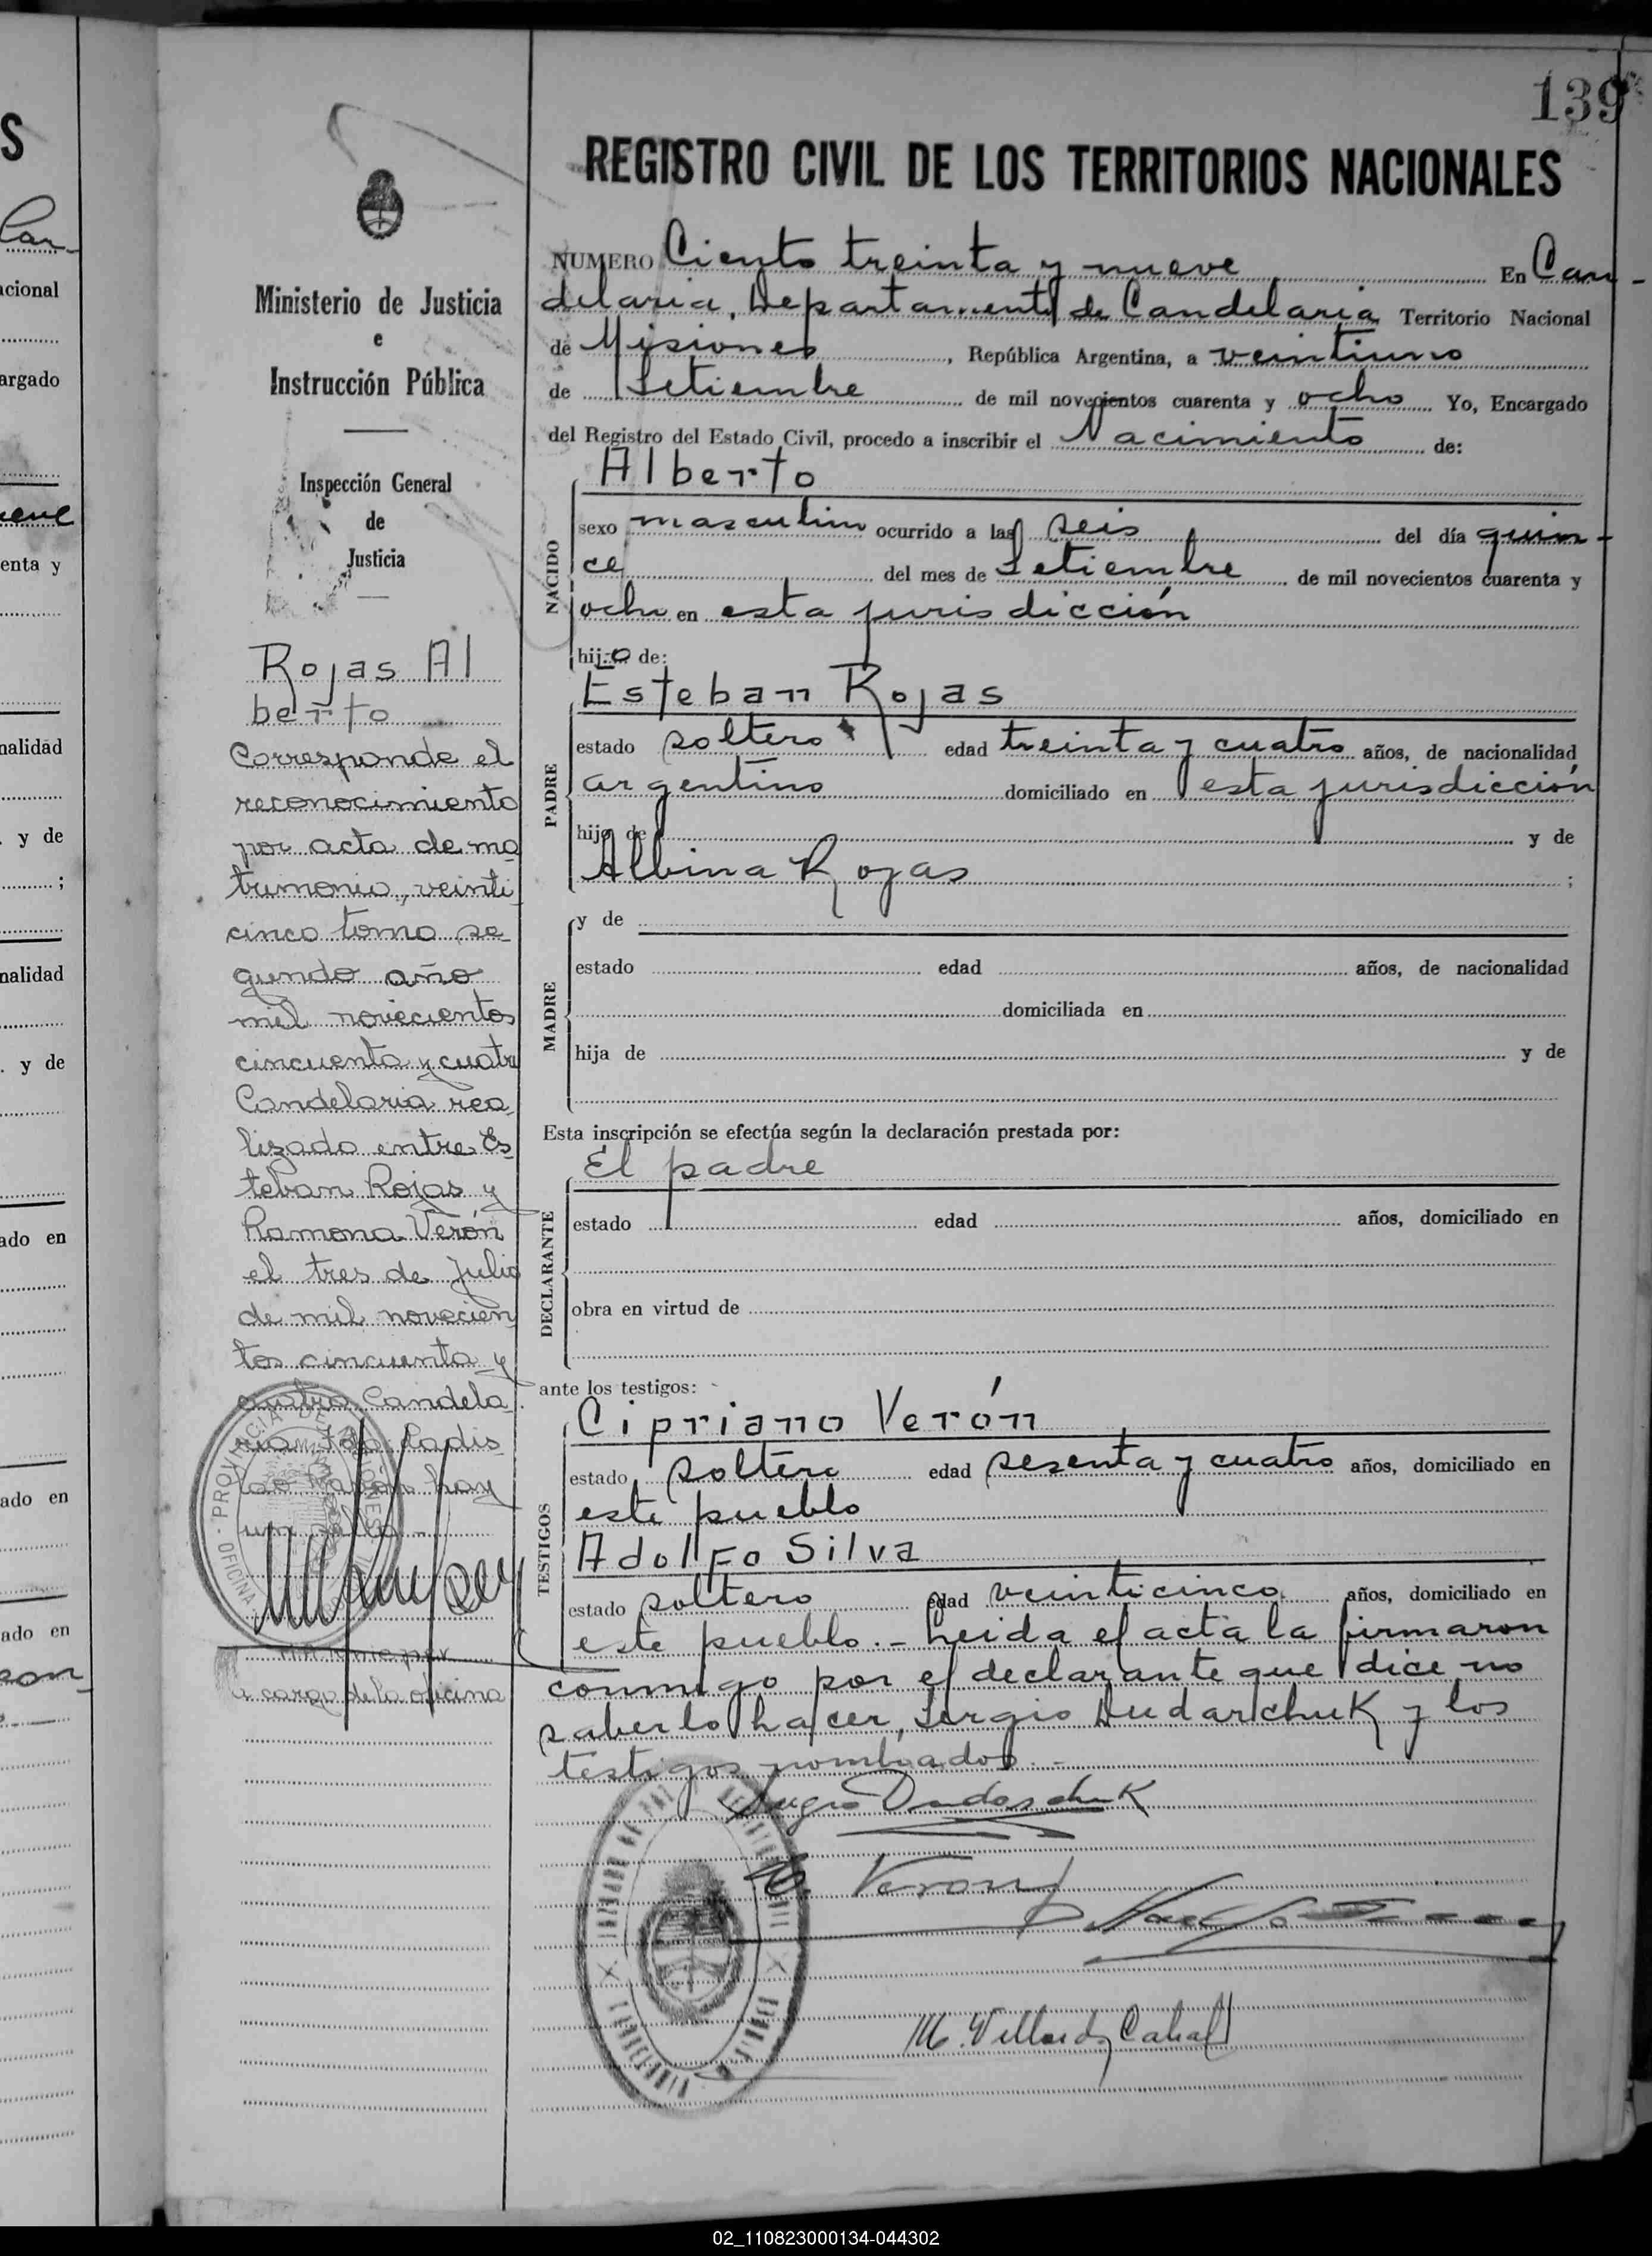 139
REGISTRO CIVIL DE LOS TERRITORIOS NACIONALES
Ministerio de Justicia
e
Instrucción Pública
Inspección General
de
Justicia
Rojas Al
berto
Corresponde el
reconocimiento
por acta de ma
trimonio, veinti
cinco tomo se
gundo año
mil novecientos
cincuenta y cuatro
Candelaria rea
lizado entre Es
teban Rojas y
Ramona Verón
el tres de Julio
de mil novecien
tos cincuenta y
cuatro Candela
hay
un sello -
a cargo de la oficina
NUMERO Ciento treinta y nueve En Can-
delaria, Departamento de Candelaria Territorio Nacional
de Misiones, República Argentina, a veintiuno
de Setiembre de mil novecientos cuarenta y ocho Yo, Encargado
del Registro del Estado Civil, procedo a inscribir el Nacimiento de:
NACIDO
Alberto
sexo masculino ocurrido a las seis del día quin-
ce del mes de Setiembre de mil novecientos cuarenta y
ocho en esta jurisdicción
hijo de:
PADRE
Esteban Rojas
estado soltero edad treinta y cuatro años, de nacionalidad
argentino domiciliado en esta jurisdicción
hijo de y de
Albina Rojas ;
MADRE
y de
estado edad años, de nacionalidad
domiciliada en
hija de y de
Esta inscripción se efectúa según la declaración prestada por:
DECLARANTE
El padre
estado edad años, domiciliado en
obra en virtud de
ante los testigos:
TESTIGOS
Cipriano Verón
estado soltero edad sesenta y cuatro años, domiciliado en
este pueblo
Adolfo Silva
estado soltero edad veinticinco años, domiciliado en
este pueblo.- Leida el acta la firmaron
conmigo por el declarante que dice no
saberlo hacer, Sergio Dudarchuk y los
testigos nombrados.-
Veron
M. Villordo Cabal
PROVINCIA DE MISIONES
OFICINA
S
Can-
acional
argado
ueve
enta y
nalidad
. y de
;
nalidad
. y de
ado en
ado en
ado en
con-
02_110823000134-044302